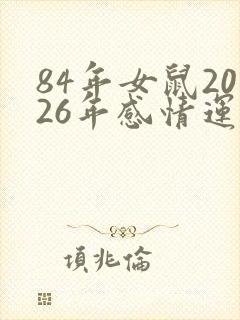 84年女鼠20
26年感情運
項兆倫